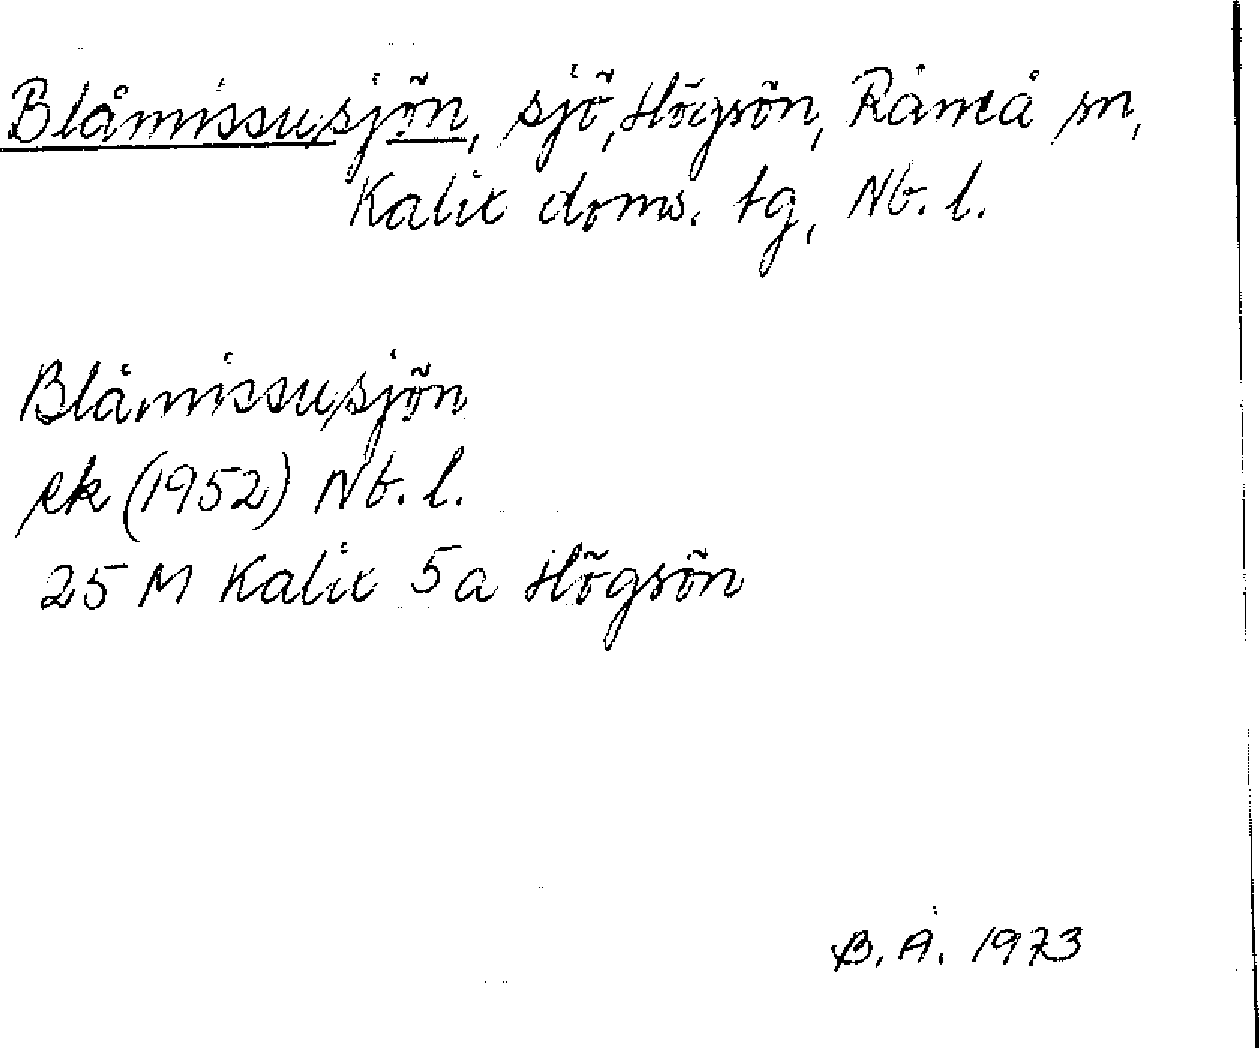 Blåmissusjön, sjö, Högsön, Råneå sn,
Kalix doms. tg, Nb. l.
Blåmissusjön
ek (1952) Nb. l.
25 M Kalix 5a Högsön
B. Å. 1973